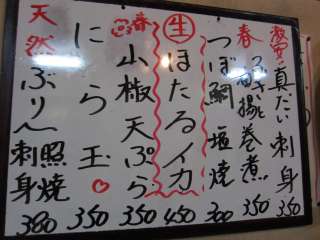 激安 真だい刺身 350
春 巻煮 350
つぼ鯛 塩焼 300
生 ほたるイカ 450
春 小椒天ぷら 350
にら玉 350
天然ぶり 照焼 刺身 380